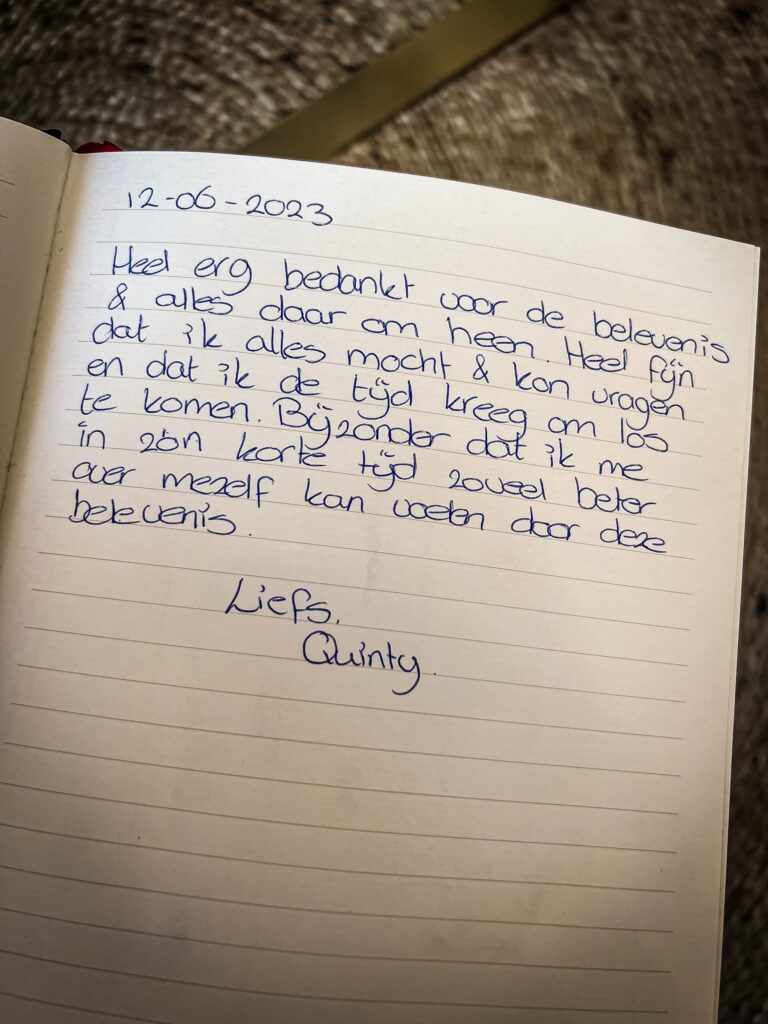 12-06-2023
Heel erg bedankt voor de belevenis
& alles daar om heen. Heel fijn
dat ik alles mocht & kon vragen
en dat ik de tijd kreeg om los
te komen. Bijzonder dat ik me
in zo'n korte tijd zoveel beter
over mezelf kan voelen door deze
belevenis.
Liefs,
Quinty.